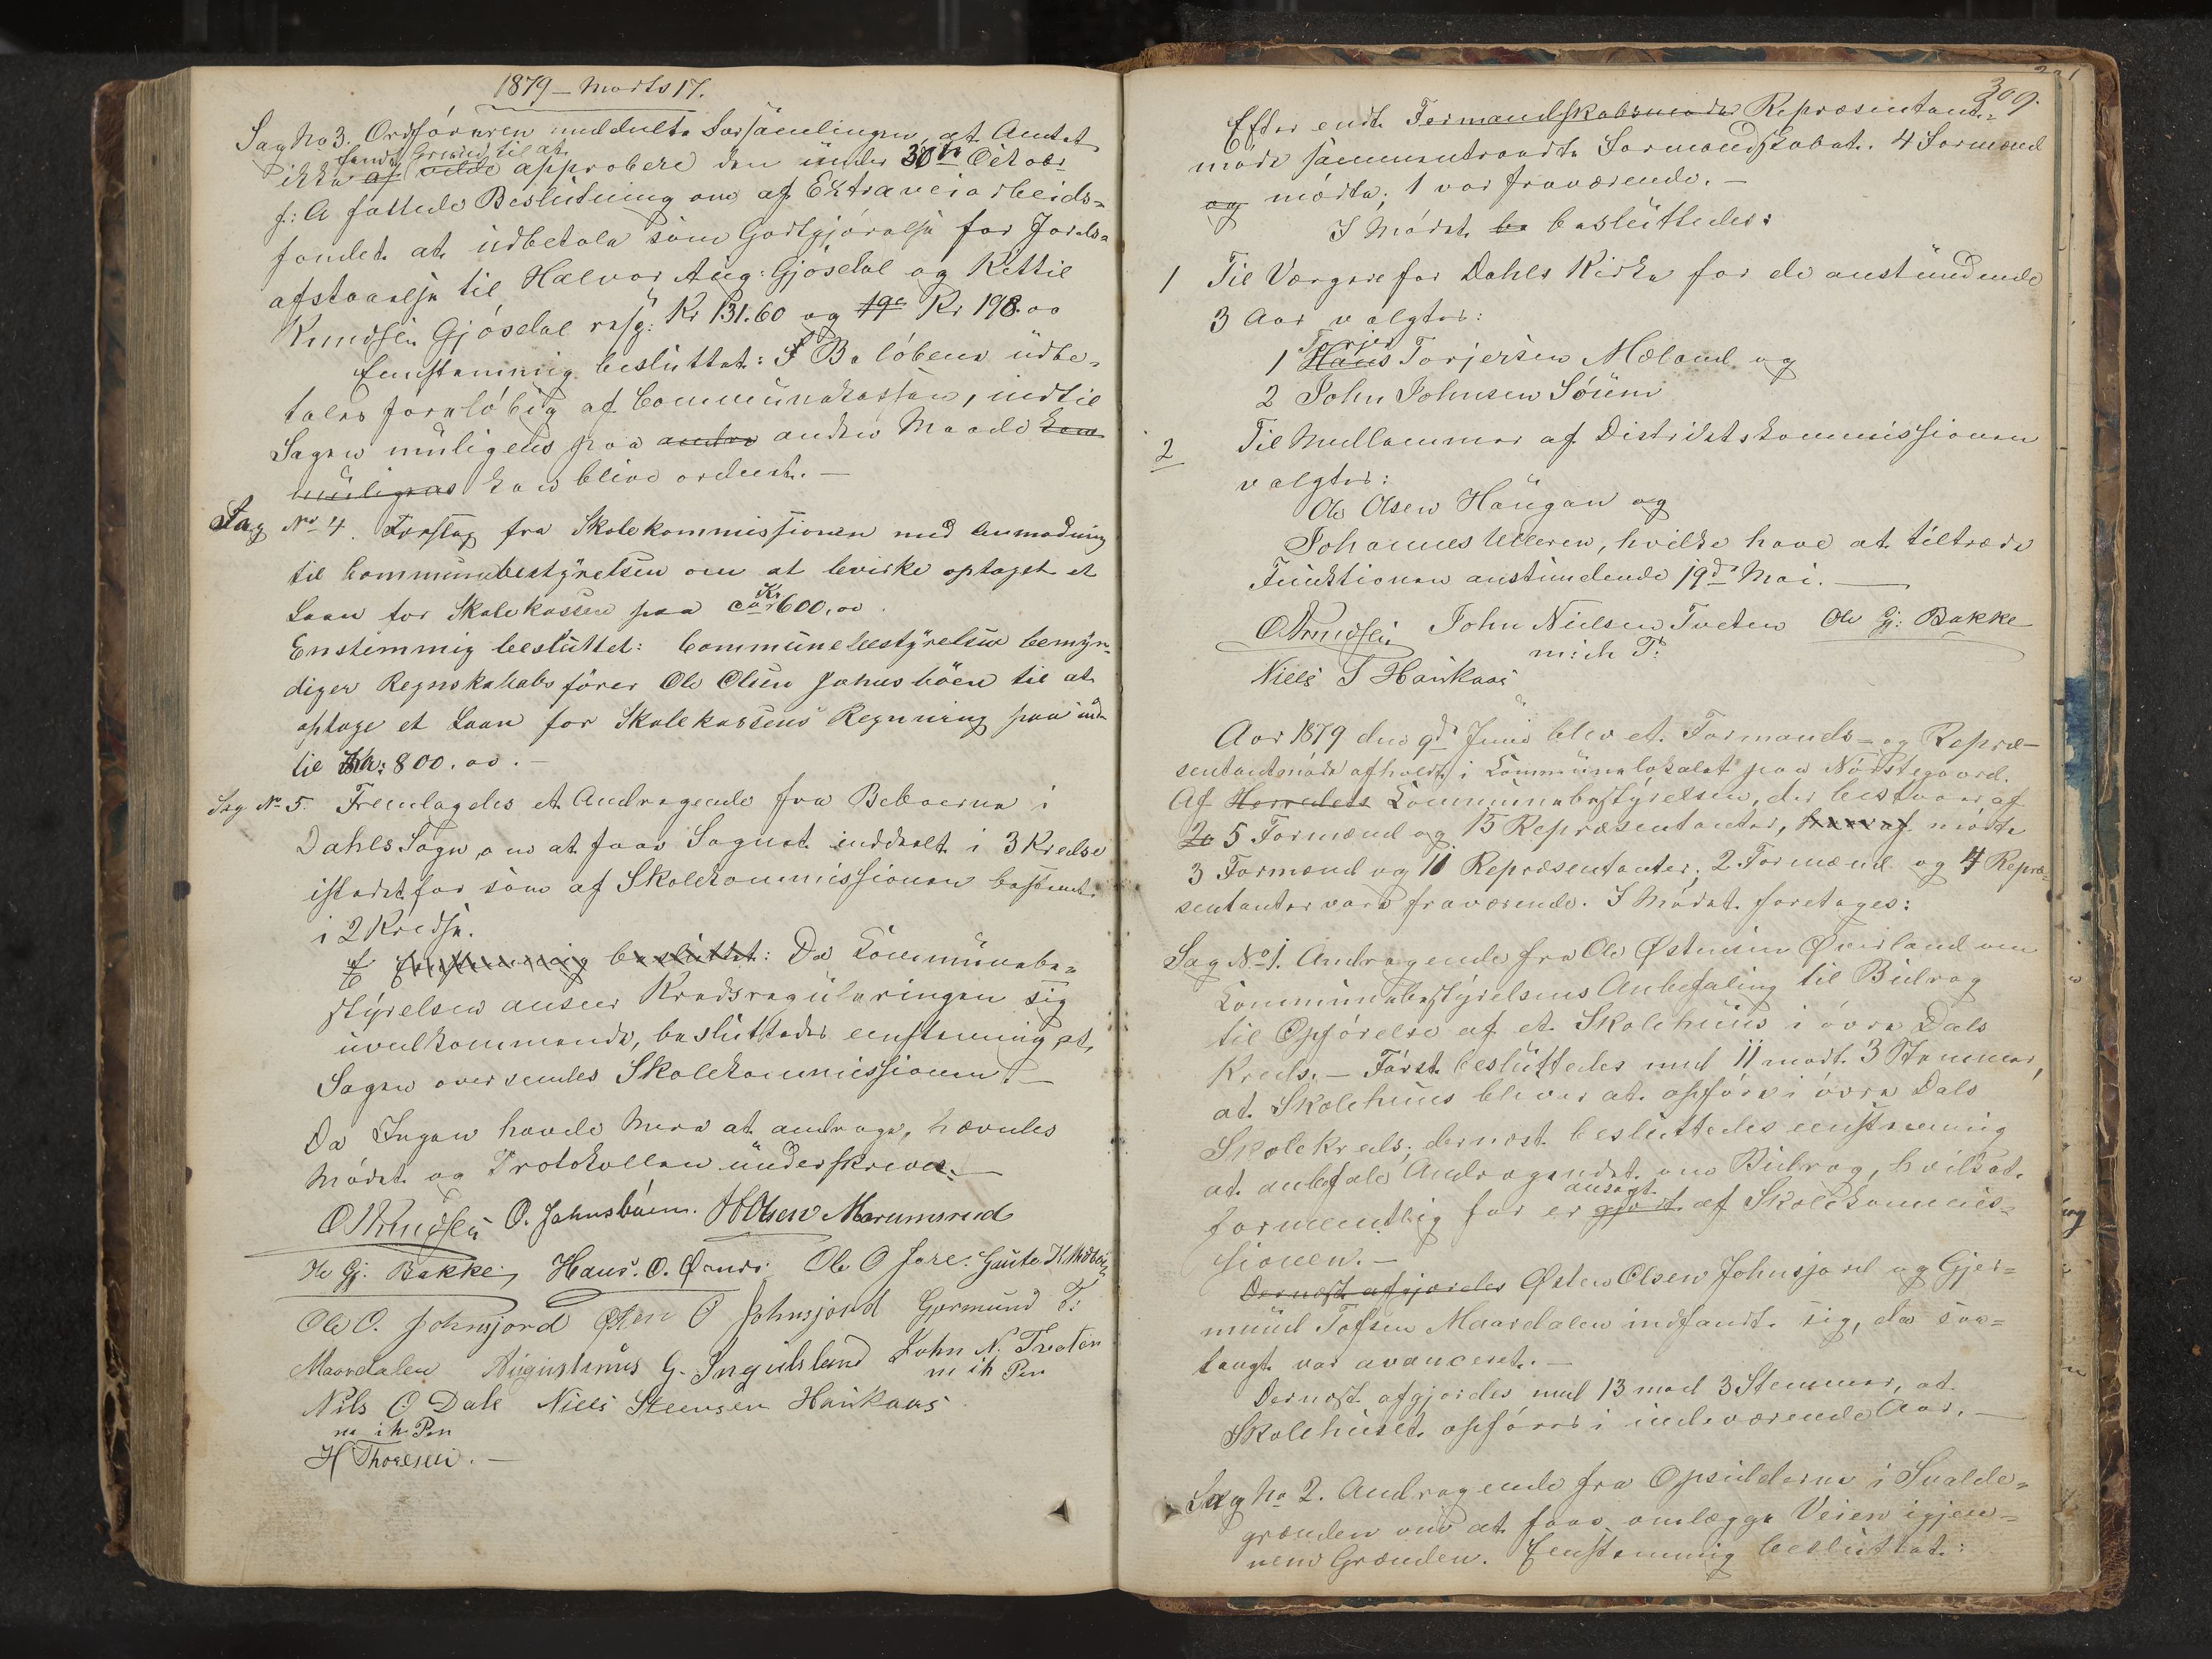 1879 – Marts 17.
Sag No 3. Ordföreren meddelte Forsamlingen, at Amtet
fandt Grund til at
ikke af vilde approbere den under 30te Octobr
f: A fattede Beslutning om af Extraveiarbeids-
fondet at udbetale som Godtgjörelse for Jords-
afstaaelse til Halvor Aug: Gjösdal og Kittil
Knudsen Gjösdal resp: Kr 131.60 og 19c Kr 198.00
Eenstemmig besluttet: I Belöbene udbe-
tales forelöbig af Communekassen, indtil
Sagen muligens paa andre anden Maade kan
muligens kan blive ordnet. –
Sag No 4. Forslag fra Skolekommissionen med Anmodning
til Communebestyrelsen om at bevirke optaget et
Kr
Laan for Skolekassen paa ca 600.00
Enstemmig besluttet: Communebestyrelsen bemyn-
diger Regnskabsförer Ole Olsen Jahnsböen til at
optage et Laan for Skolekassens Regnning paa ind-
til Kr: 800.00. –
Sag No 5. Fremlagdes et Andragende fra Beboerne i
Dahls Sogn, om at faae Sognet inddeelt i 3 Kredse
istedetfor som af Skolekommissionen bestemt
i 2 Kredse.
E Eenstemmig besluttet: Da Kommunebe-
styrelsen anseer Kredsreguleringen sig
uvedkommende, besluttedes eenstemmig at
Sagen oversendes Skolekommissionen. –
Da Ingen havde Mere at andrage, hævedes
Mödet og Protokollen underskreves. –
O Knudsen O. Jahnsböen. H Olsen Marumsrud
Ole Gj. Bakke, Hans. O. Ørnes Ole O Jore. Gaute K
Ole O. Johnsjord Østen O Johnsjord Gjermund T:
Maardalen Augustinus G. Ingulsland John N. Tveten
m ih Pen
Nils O Dale Niels Steensen Haukaas
m ih Pen
H Thoresen. –
309.
Efter endt Formandskabsmöde Repræsentant-
möde sammentraadte Formandskabet. 4 Formænd
og mödte; 1 var fraværende. –
I Mödet be besluttedes:
1 Til Værgere for Dahls Kirke for de anstundende
3 Aar valgtes:
Torjer
1 Hans Torjersen Mæland og
2 John Johnsen Söum
2 Til Medlemmer af Distriktskommissionen
valgtes:
Ole Olsen Haugan og
Johannes Ulleren, hvilke have at tiltræde
Funktionen anstundende 19de Mai. –
O Knudsen John Nielsen Tveten Ole Gj: Bakke
m: ih P:
Niels S Haukaas
Aar 1879 den 9de Juni blev et Formands- og Repræ-
sentantmöde afholdt i Kommunelokalet paa Nordstegaard.
Af Herredets Kommunebestyrelsen, der bestaaer af
20 5 Formænd og 15 Repræsentanter, heraf mödte
3 Formænd og 11 Repræsentanter; 2 Formænd og 4 Repræ-
sentanter vare fraværende. I Mödet foretoges:
Sag No 1. Andragende fra Ole Østensen Øverland om
Kommunebestyrelsens Anbefaling til Bidrag
til Opförelse af et Skolehuus i övre Dals
Kreds. – Först besluttedes med 11 mod 3 Stemmer,
at Skolehuus bliver at opföre i övre Dals
Skolekreds; dernæst besluttedes eenstemmig
at anbefale Andragendet om Bidrag, hvilket
ansögt
formeentlig för er gjort af Skolekommis-
sionen. –
Dernæst afgjordes Østen Olsen Johnsjord og Gjer-
mund Tofsen Maardalen indfandt sig, da saa-
langt var avanceret. –
Dernæst afgjordes med 13 mod 3 Stemmer, at
Skolehuset opföres i indeværende Aar. –
Sag No 2. Andragende fra Opsidderne i Svalde-
grænden om at faae omlægge Veien igjen-
nem Grænden. Eenstemmig besluttet: